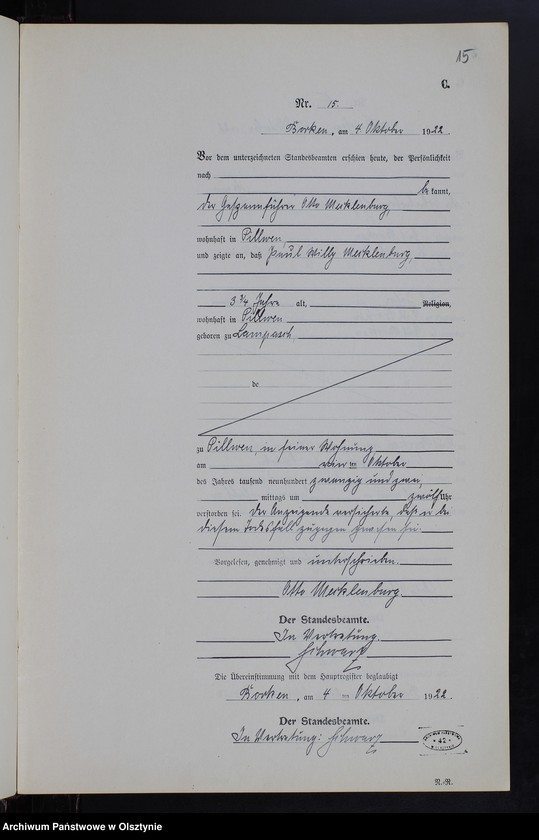 15
C.
Nr. 15.
Borken, am 4 Oktober 1922.
Vor dem unterzeichneten Standesbeamten erschien heute, der Persönlichkeit
nach
be kannt,
der Gespannführer Otto Mecklenburg,
wohnhaft in Pillwen,
und zeigte an, daß Paul Willy Mecklenburg,
3 3/4 Jahre alt, Religion,
wohnhaft in Pillwen
geboren zu Lampasch,
de
zu Pillwen, in seiner Wohnung
am Oktober
des Jahres tausend neunhundert zwanzig und zwei,
mittags um zwölf Uhr
verstorben sei. Der Anzeigende versicherte, daß er bei
diesem Todesfall zugegen gewesen sei.
Vorgelesen, genehmigt und unterschrieben.
Otto Mecklenburg.
Der Standesbeamte.
In Vertretung.
Schwarz
Die Übereinstimmung mit dem Hauptregister beglaubigt
Borken, am 4 ten Oktober 1922.
Der Standesbeamte.
In Vertretung: Schwarz
* 42 *
N.-R.
Archiwum Państwowe w Olsztynie